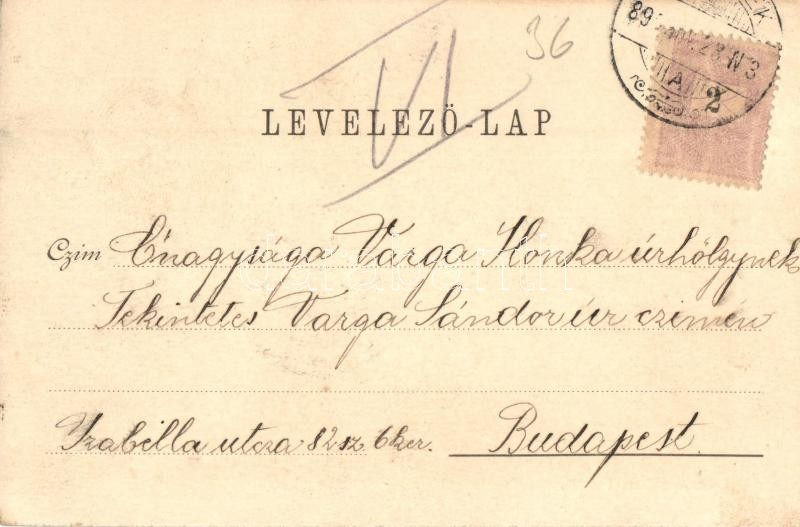 36
VI
LEVELEZŐ-LAP
2
Czim Őnagysága Varga Ilonka úrhölgynek
Tekintetes Varga Sándor úr czimén
Izabella utcza 82 sz. 6 ker. Budapest